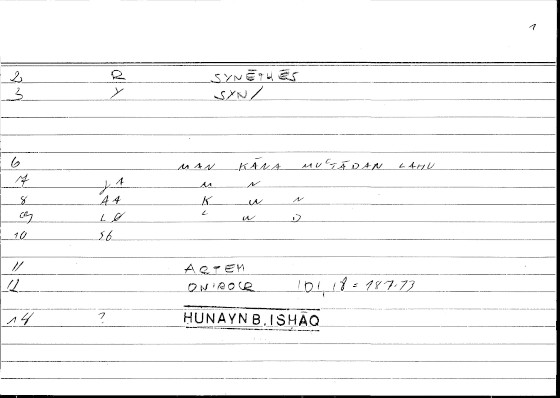 1
2 R SYNĒTHĒS
3 Y SYN/
6 MAN KĀNA MUʿTĀDAN LAHU
7 JA M N
8 AA K W N
9 LØ ʿ W D
10 S6
11 ARTEM
12 ONIROCR 101,18 = 187.73
14 ? HUNAYN B. ISḤĀQ